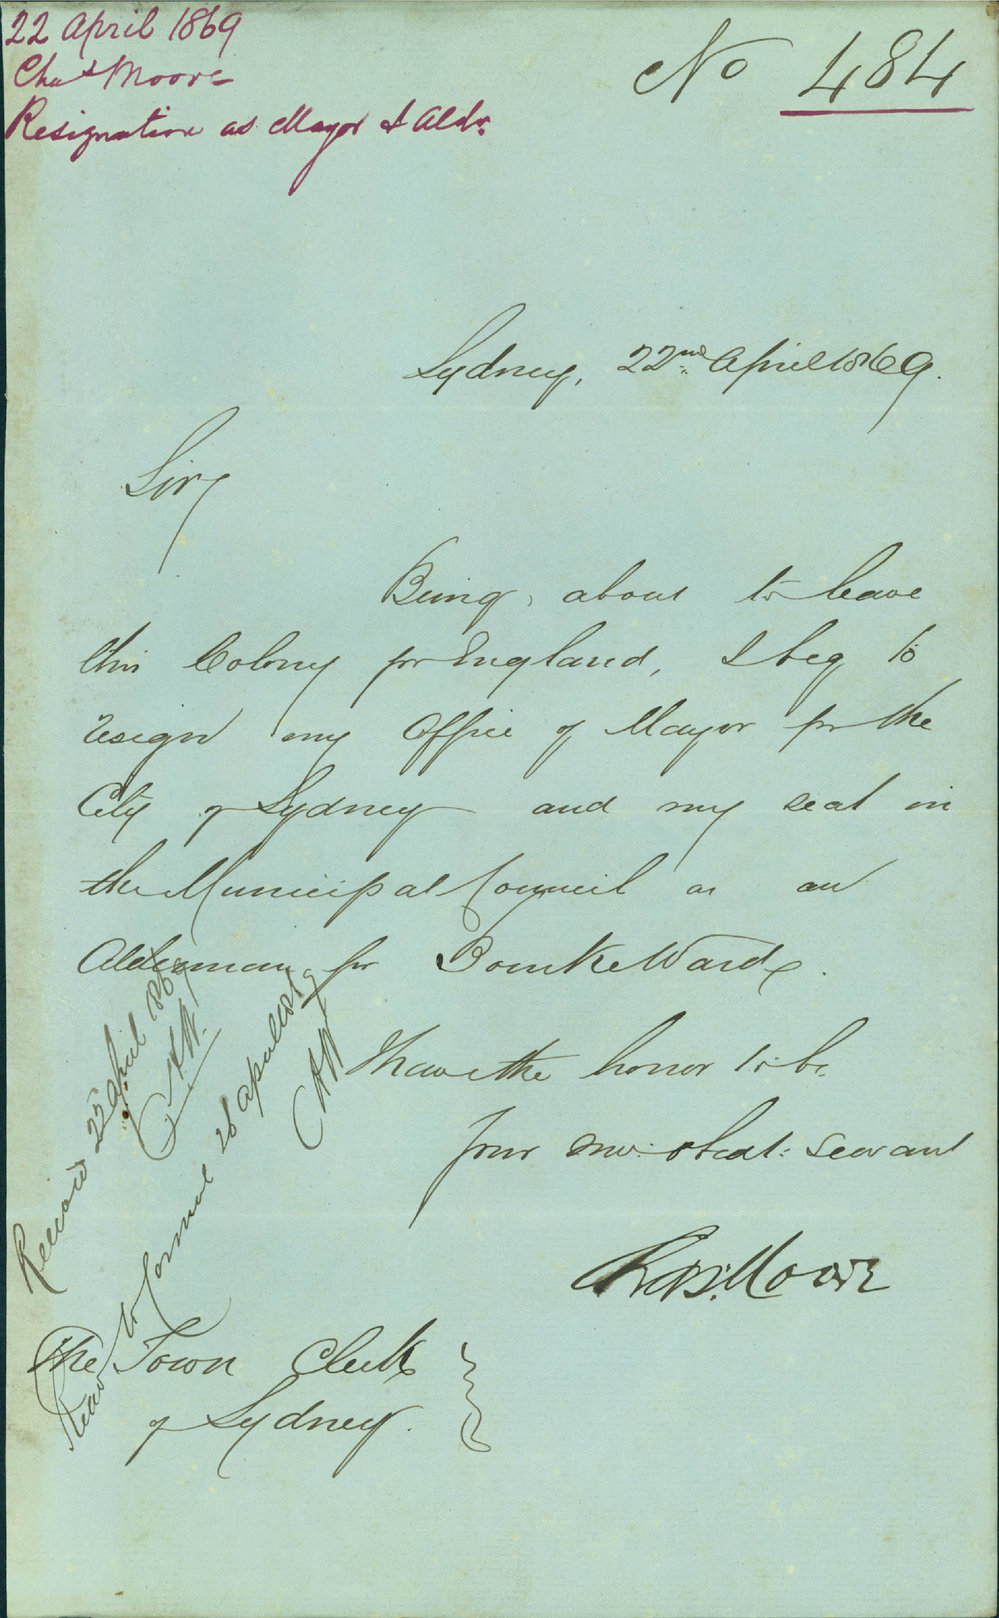 22 April 1869
Chas Moore
Resignation as Mayor & Aldn.
No 484
Sydney, 22nd. April 1869.
Sir,
Being, about to leave
this Colony for England, I beg to
resign my Office of Mayor for the
City of Sydney and my seat in
the Municipal Council as an
Alderman for Bourke Ward.
I have the honor to be.
Your mo: obedt: servant
Chas. Moore
The Town Clerk
of Sydney.
Received 22 April 1869
CHW.
Read to Council 26 April 1869
CHW